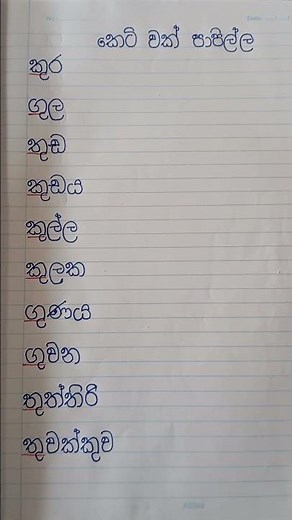 කෙටි වක් පාපිල්ල
කුර
ගුල
තුඩ
කුඩය
කුල්ල
කුලක
ගුණය
ගුවන
තුත්තිරි
තුවක්කුව